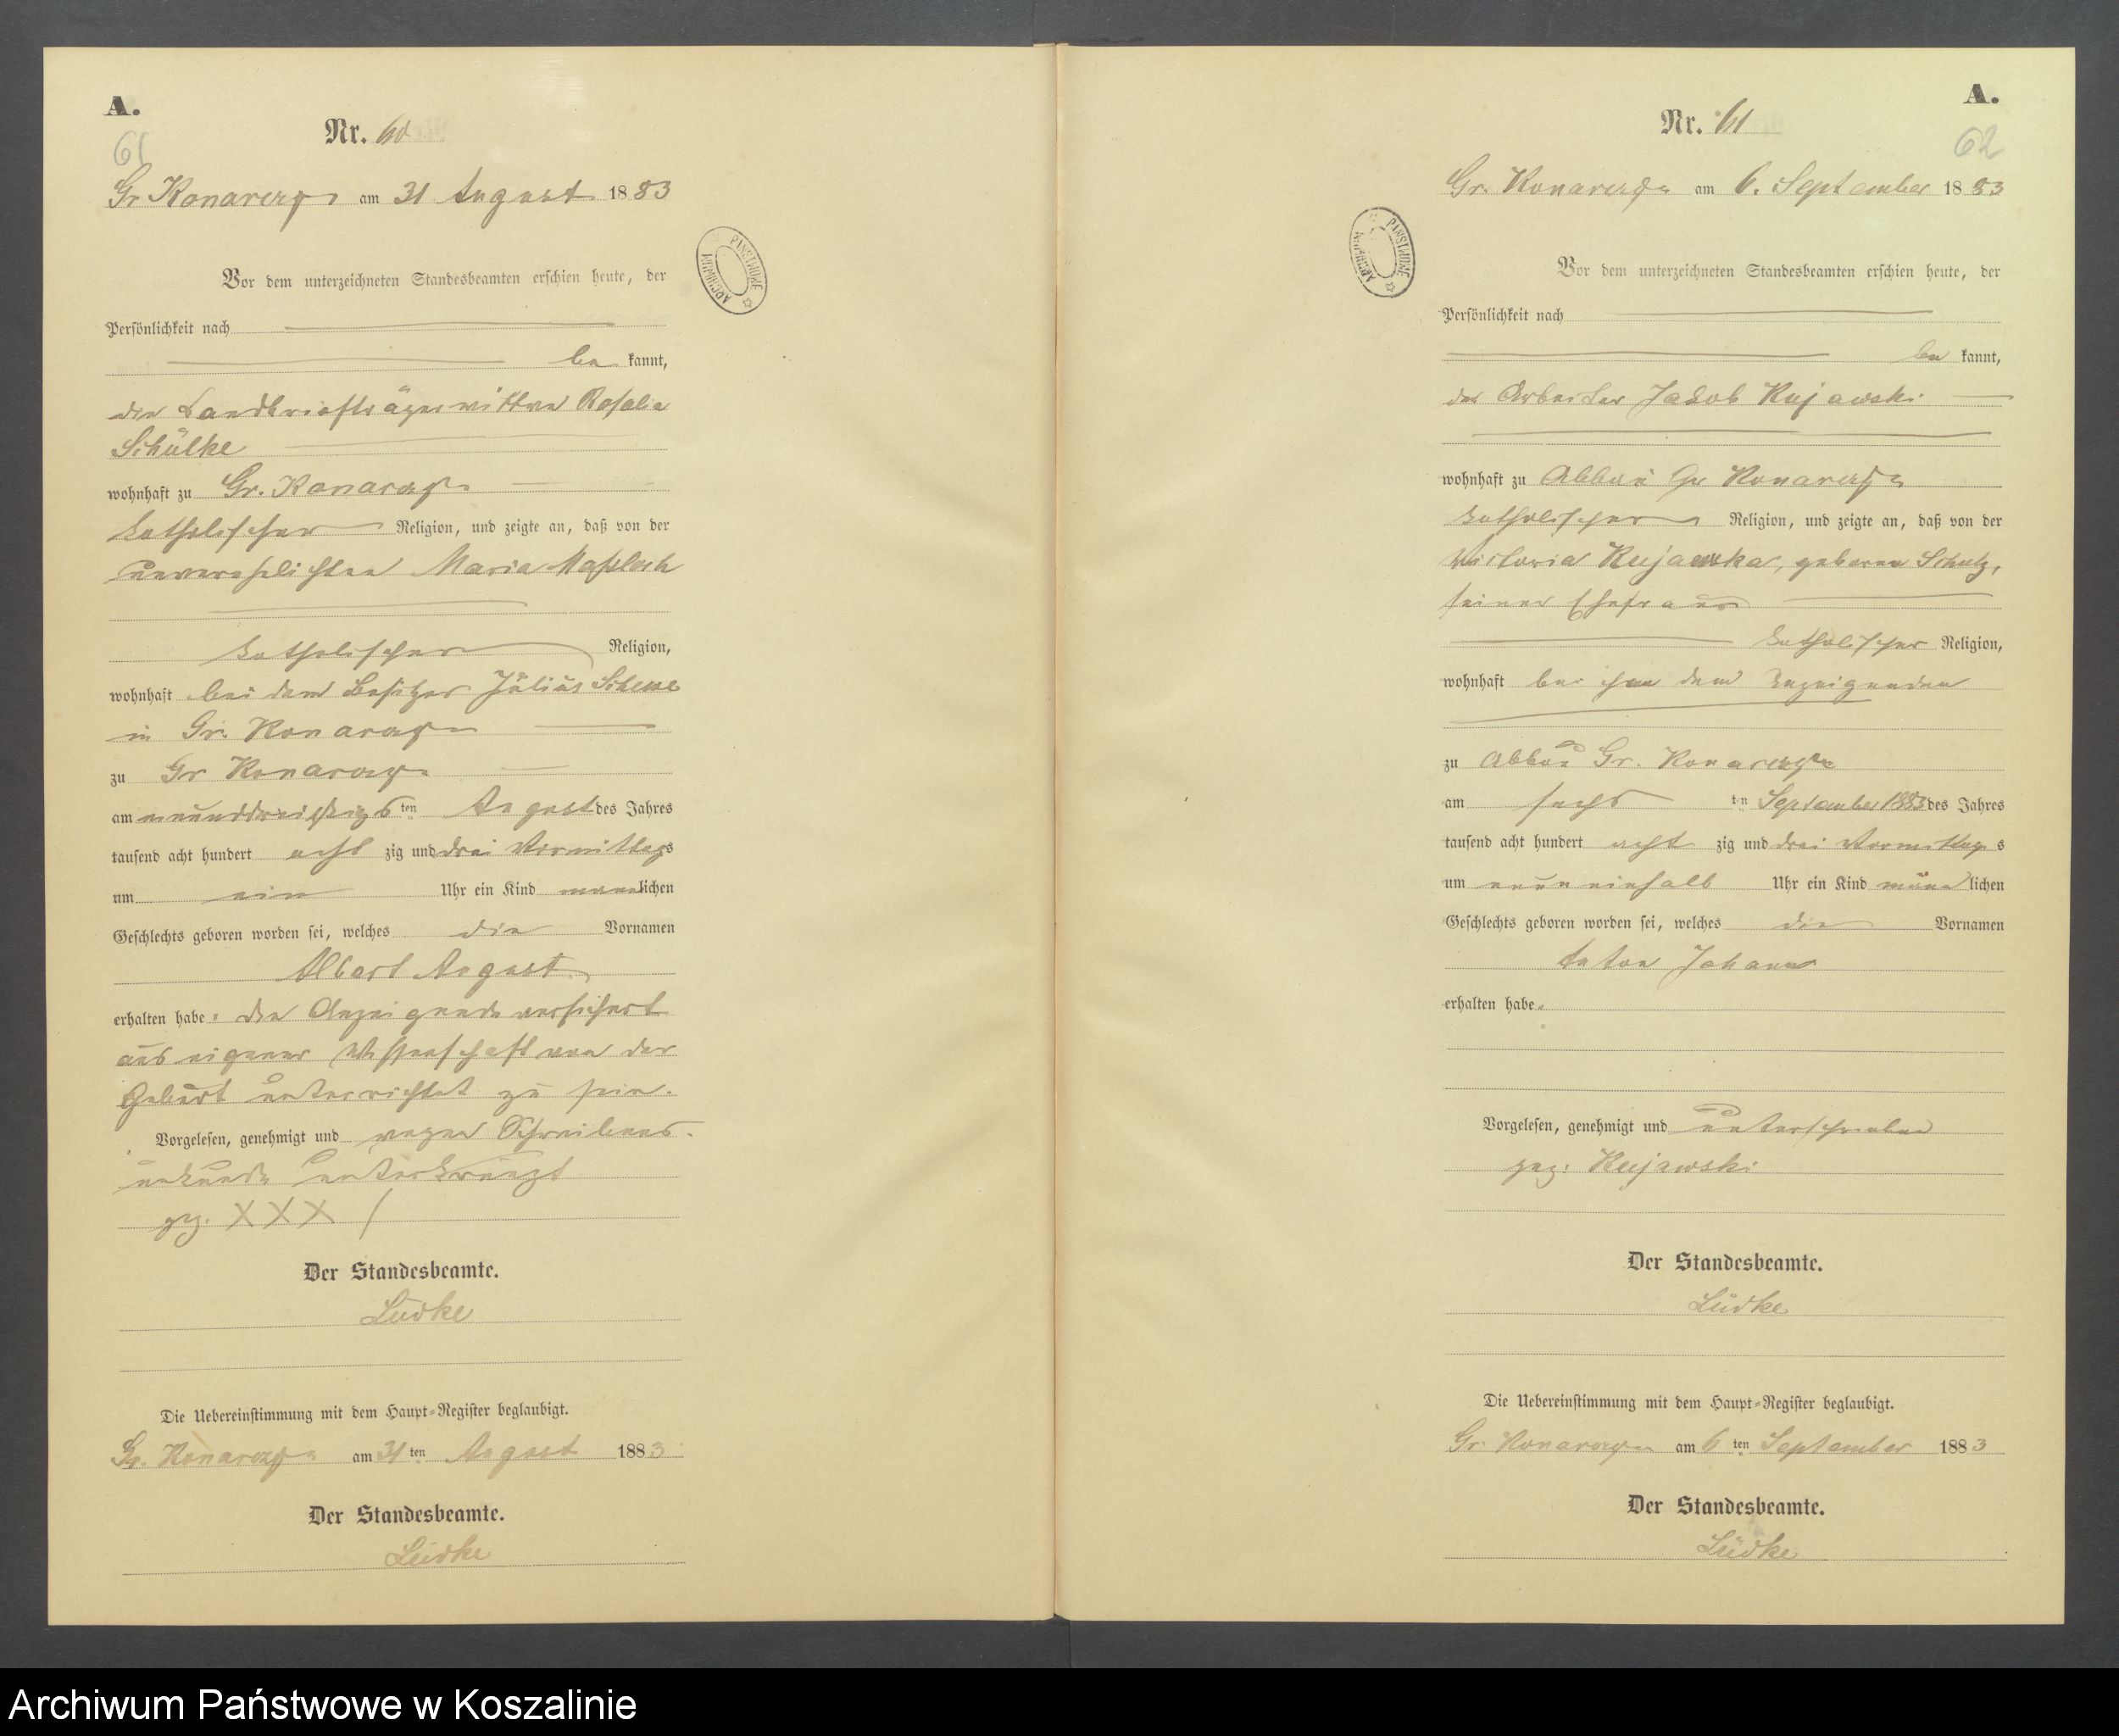 A.
61
Nr. 60
Gr Konarczyn am 31 August 1883
Vor dem unterzeichneten Standesbeamten erschien heute, der
Persönlichkeit nach
be kannt,
die Landbriefträgerwittwe Rosalie
Schülke
wohnhaft zu Gr. Konarczyn
katholischer Religion, und zeigte an, daß von der
unverehelichten Maria
katholischer Religion,
wohnhaft bei dem Besitzer Julius
in Gr. Konarczyn
zu Gr Konarczyn
am ten August des Jahres
tausend acht hundert acht zig und drei Vormittags
um ein Uhr ein Kind männlichen
Geschlechts geboren worden sei, welches die Vornamen
Albert August
erhalten habe: die Anzeigende versichert
aus eigener Wissenschaft von der
Geburt unterrichtet zu sein.
Vorgelesen, genehmigt und wegen Schreibens-
unkunde unterkreuzt
gez. XXX
Der Standesbeamte.
Lüdke
Die Uebereinstimmung mit dem Haupt-Register beglaubigt.
Gr. Konarczyn am 31 ten August 1883
Der Standesbeamte.
Lüdke
A.
62
Nr. 61
Gr. Konarczyn am 6. September 1883
Vor dem unterzeichneten Standesbeamten erschien heute, der
Persönlichkeit nach
be kannt,
der Arbeiter Jakob Kujawski
wohnhaft zu Abbau Gr Konarczyn
katholischer Religion, und zeigte an, daß von der
Victoria Kujawska, geborene Schulz,
seiner Ehefrau
katholischer Religion,
wohnhaft bei ihm dem Anzeigenden
zu Abbau Gr. Konarczyn
am sechs ten September 1883 des Jahres
tausend acht hundert acht zig und drei Vormittags
um neuneinhalb Uhr ein Kind männlichen
Geschlechts geboren worden sei, welches die Vornamen
Anton Johann
erhalten habe.
Vorgelesen, genehmigt und unterschrieben
gez: Kujawski
Der Standesbeamte.
Lüdke
Die Uebereinstimmung mit dem Haupt-Register beglaubigt.
Gr. Konarczyn am 6 ten September 1883
Der Standesbeamte.
Lüdke
ARCHIWUM PAŃSTWOWE
ARCHIWUM PAŃSTWOWE
Archiwum Państwowe w Koszalinie